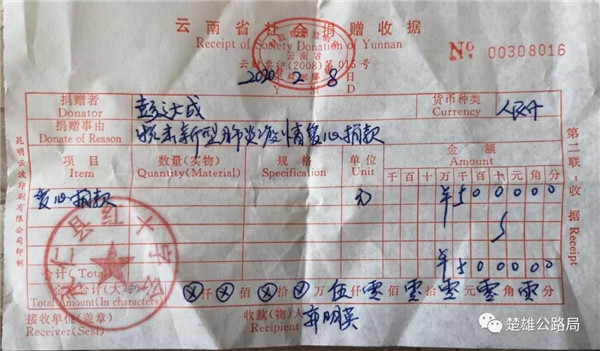 云南省社会捐赠收据
Receipt of Society Donation of Yunnan
云财票印(2008)第015号
No 00308016
2020 2 8
Y M D
捐赠者
Donator
货币种类
Currency
人民币
捐赠事由
Donate of Reason
新型肺炎疫情爱心捐款
项目
Item
数量(实物)
Quantity(Material)
规格
Specification
单位
Unit
金额
Amount
千百十万千百十元角分
爱心捐款
元
¥500000
合计(Total)
¥500000
金额合计(大写)
Total Amount(In characters)
ⓧ仟ⓧ佰ⓧ拾ⓧ万伍仟零佰零拾零元零角零分
接收单位(盖章)
Receiver(Seal)
收款(物)人
Recipient
昆明云波印刷有限公司印制
第二联:收据 Receipt
县红十字会
楚雄公路局